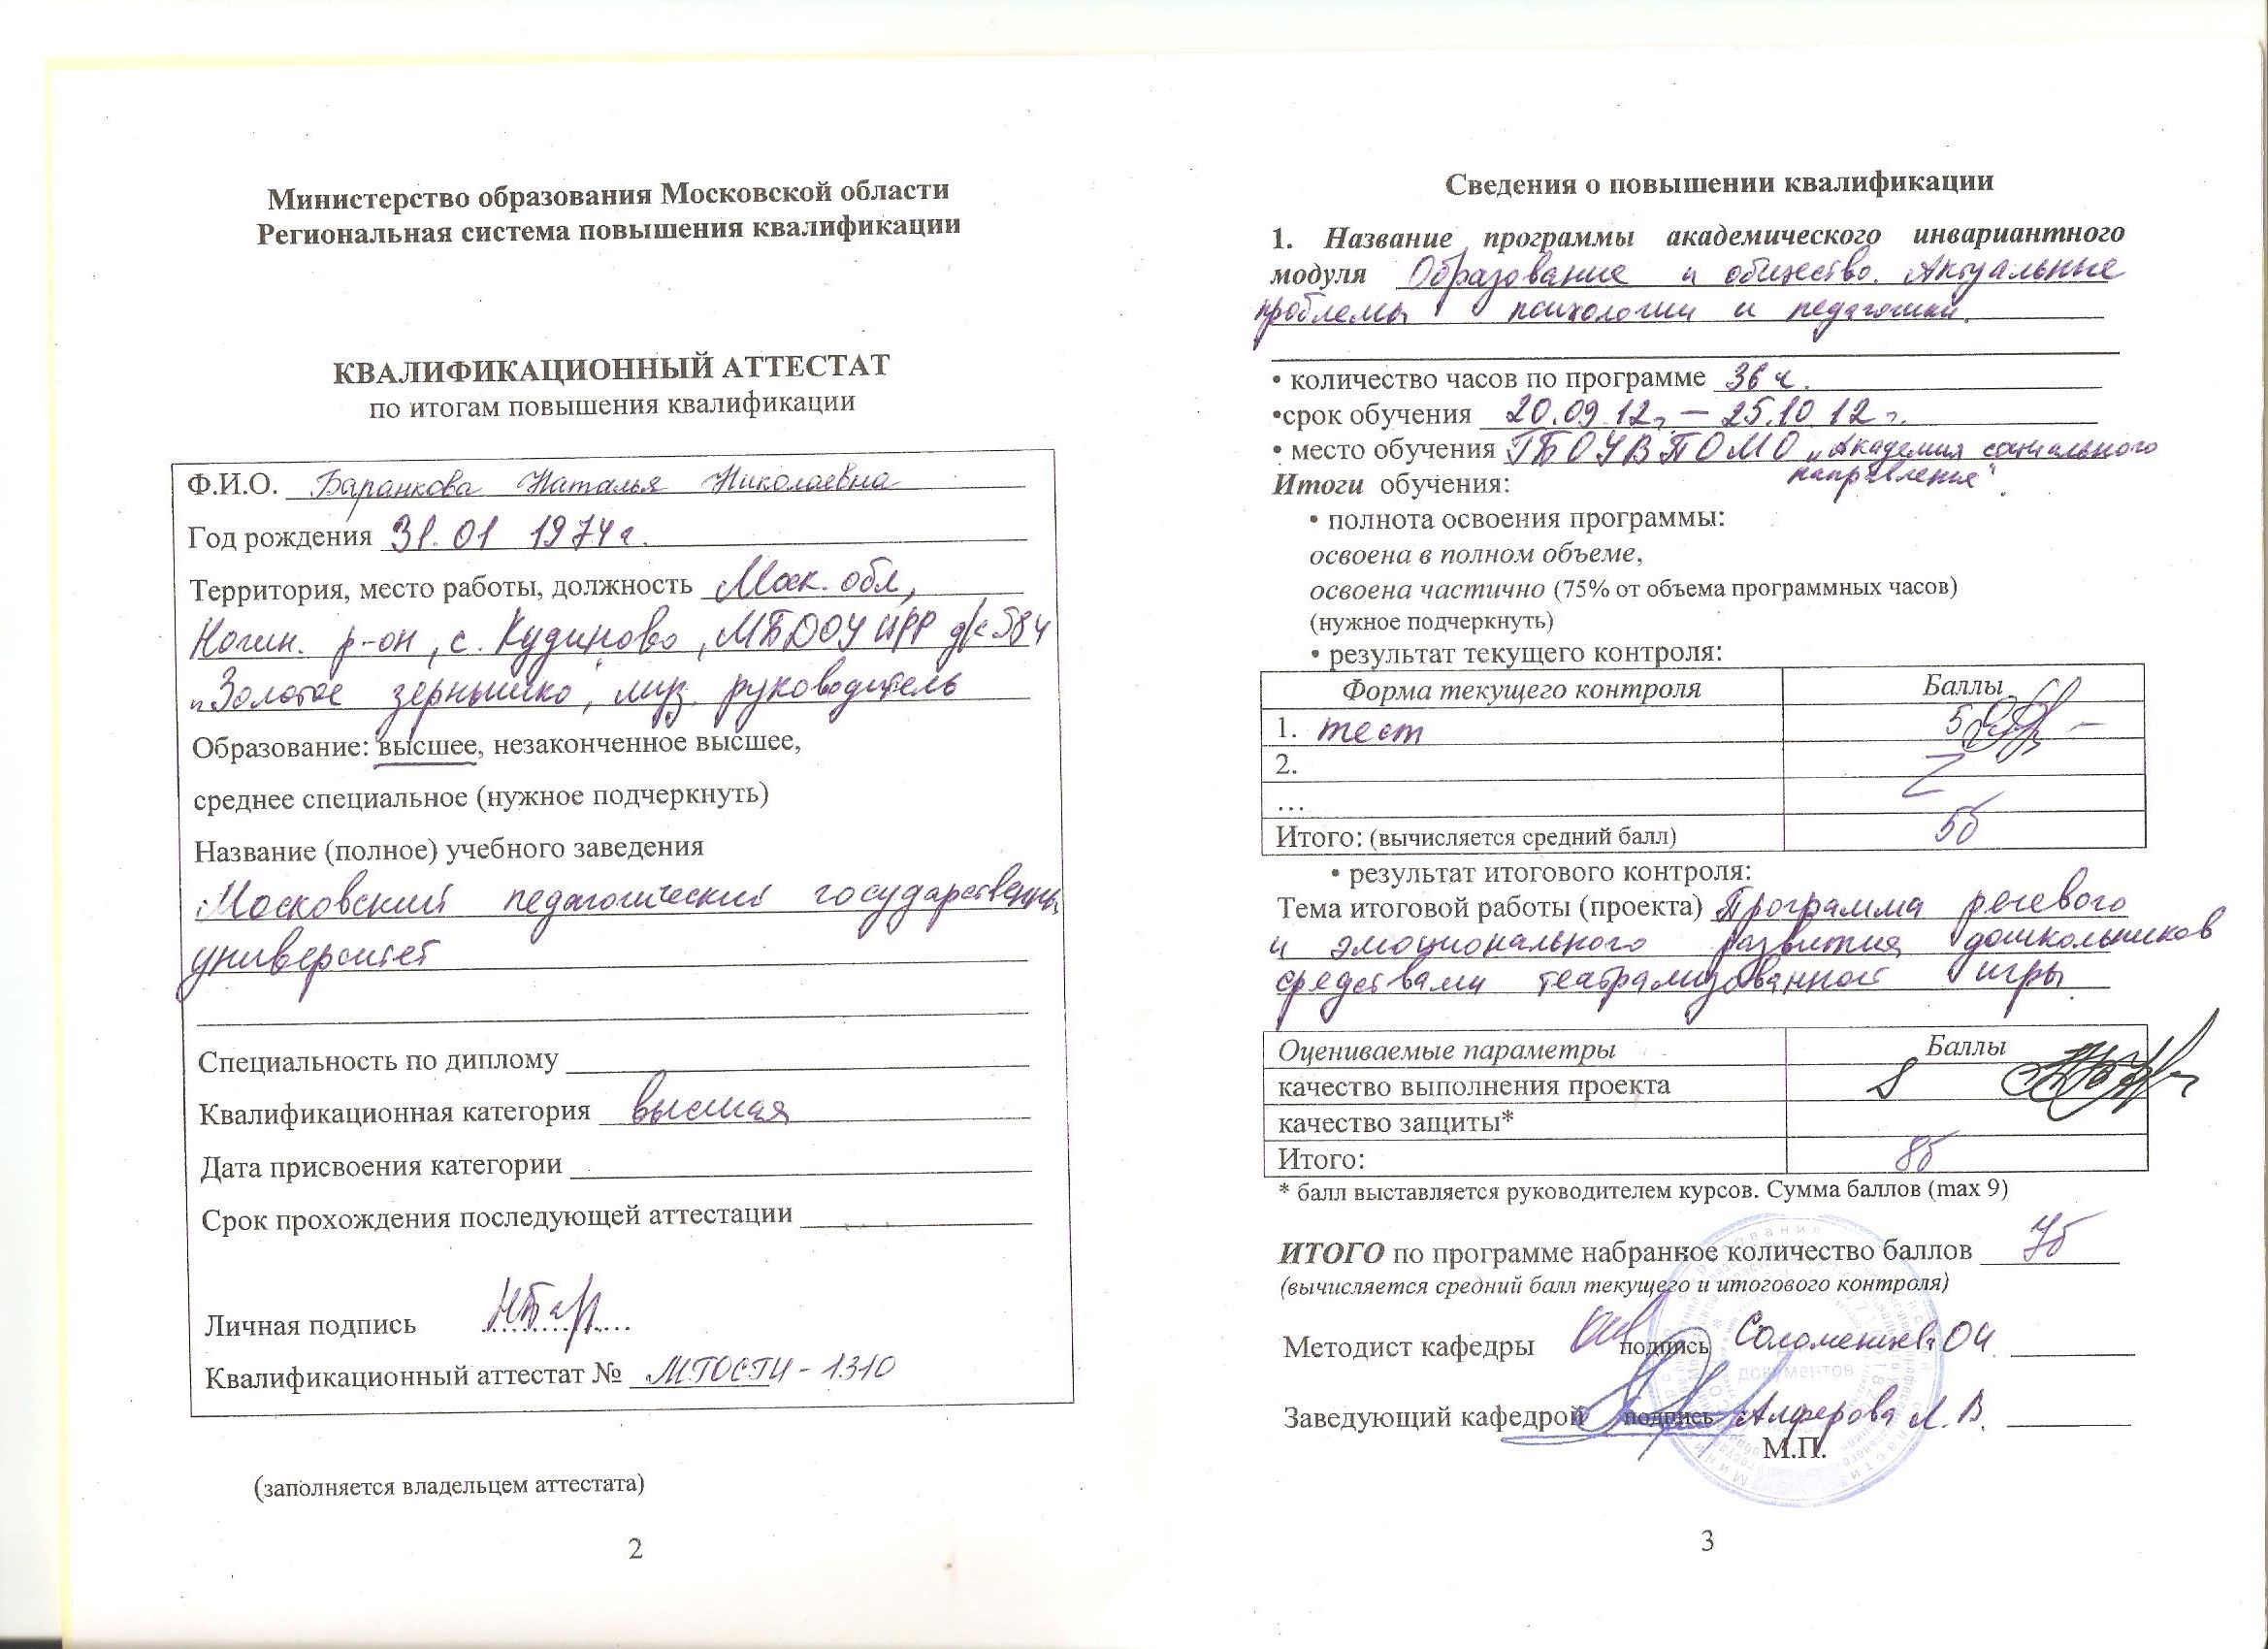 Министерство образования Московской области
Региональная система повышения квалификации
КВАЛИФИКАЦИОННЫЙ АТТЕСТАТ
по итогам повышения квалификации
Ф.И.О. Баранкова Наталья Николаевна
Год рождения 31.01 1974г.
Территория, место работы, должность Моск. обл,
Ногин. р-он, с. Кудиново, МБДОУ ЦРР д/с №84
"Золотое зернышко", муз. руководитель
Образование: высшее, незаконченное высшее,
среднее специальное (нужное подчеркнуть)
Название (полное) учебного заведения
Московский педагогический государственный
университет
Специальность по диплому
Квалификационная категория высшая
Дата присвоения категории
Срок прохождения последующей аттестации
Личная подпись
Квалификационный аттестат №
(заполняется владельцем аттестата)
2
Сведения о повышении квалификации
1. Название программы академического инвариантного
модуля Образование и общество. Актуальные
проблемы психологии и педагогики.
• количество часов по программе 36 ч.
•срок обучения 20.09.12г. – 25.10.12г.
• место обучения ГБОУВПОМО „Академия социального
направление".
Итоги обучения:
• полнота освоения программы:
освоена в полном объеме,
освоена частично (75% от объема программных часов)
(нужное подчеркнуть)
• результат текущего контроля:
Форма текущего контроля Баллы
1. тест 5
2.
...
Итого: (вычисляется средний балл) 5б
• результат итогового контроля:
Тема итоговой работы (проекта) Программа речевого
и эмоционального развития дошкольников
средствами театрализованной игры
Оцениваемые параметры Баллы
качество выполнения проекта 8
качество защиты*
Итого: 8б
* балл выставляется руководителем курсов. Сумма баллов (max 9)
ИТОГО по программе набранное количество баллов 7б
(вычисляется средний балл текущего и итогового контроля)
Методист кафедры подпись
Заведующий кафедрой подпись Алферова Л.В.
документов
М.П.
3